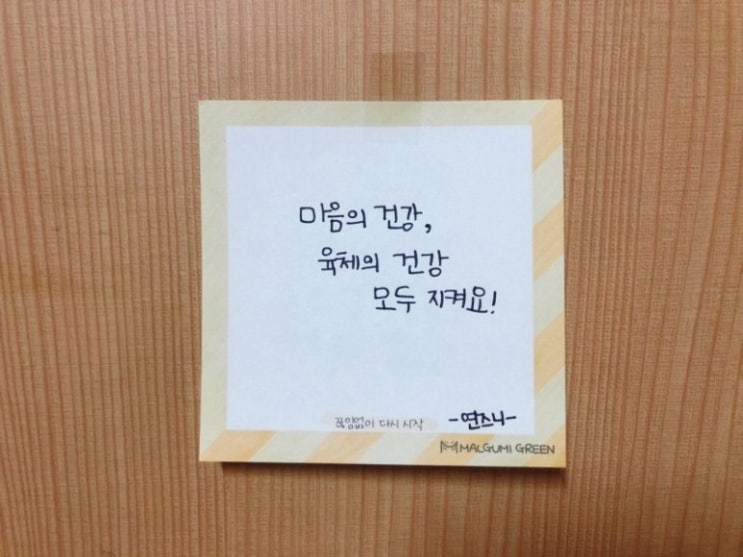 마음의 건강,
육체의 건강
모두 지켜요!
끊임없이 다시 시작
-연즈니-
MALGUMI GREEN